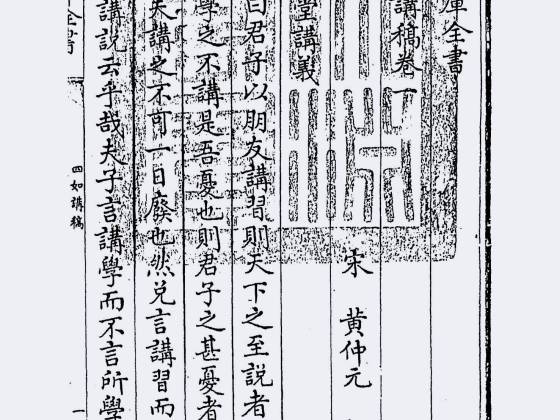 庫全書
講稿卷一
宋 黃仲元
堂講義
曰君子以朋友講習則天下之至説者
學之不講是吾憂也則君子之甚憂者
矣講之不可一日廢也然兌言講習而
講説云乎哉夫子言講學而不言所學
全書
四如講稿
一